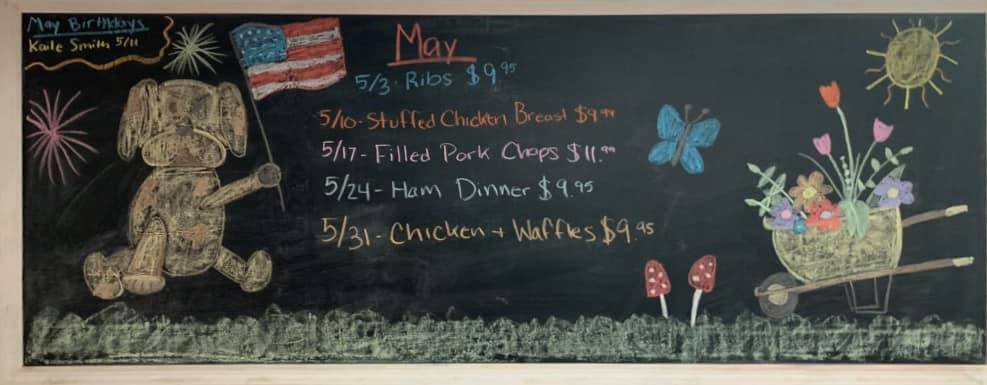 May Birthdays
Kaile Smith 5/11
May
5/3 - Ribs $9.95
5/10 - Stuffed Chicken Breast $9.99
5/17 - Filled Pork Chops $11.99
5/24 - Ham Dinner $9.95
5/31 - Chicken + Waffles $9.95